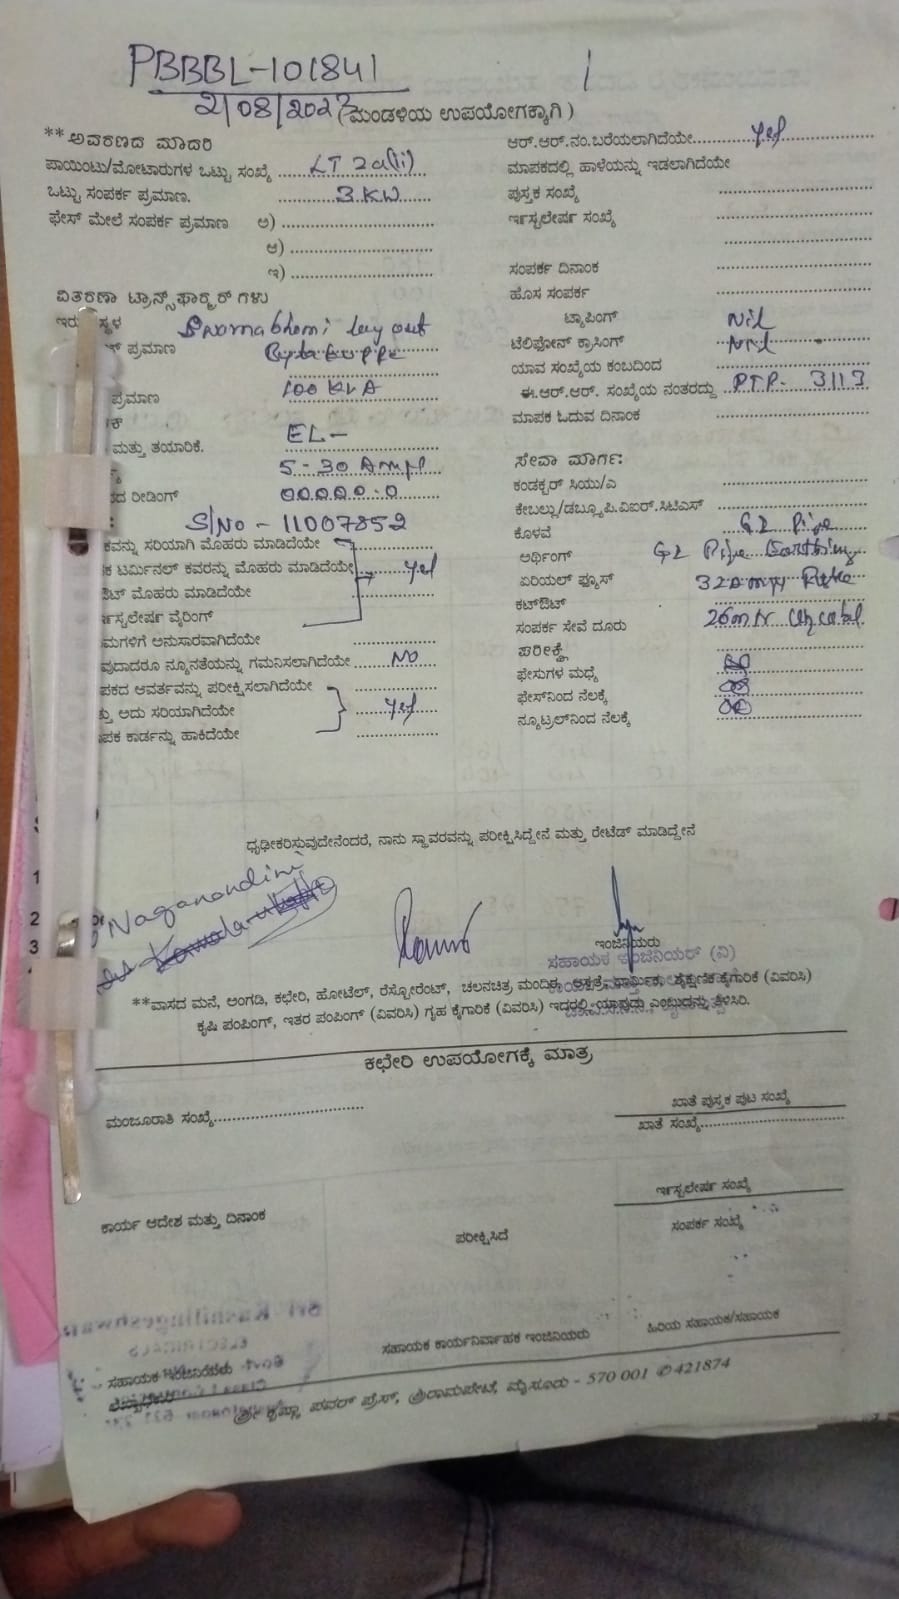 PBBBL-101841
2/08/2023 (ಮಂಡಳಿಯ ಉಪಯೋಗಕ್ಕಾಗಿ)
** ಆವರಣದ ಮಾದರಿ
ಪಾಯಿಂಟು/ಮೋಟಾರುಗಳ ಒಟ್ಟು ಸಂಖ್ಯೆ LT 2a(ii)
ಒಟ್ಟು ಸಂಪರ್ಕ ಪ್ರಮಾಣ. 3 KW
ಫೇಸ್ ಮೇಲೆ ಸಂಪರ್ಕ ಪ್ರಮಾಣ ಅ)
ಆ)
ಇ)
ವಿತರಣಾ ಟ್ರಾನ್ಸ್‌ಫಾರ್ಮರ್ ಗಳು
ಸ್ಥಳ lay out
ಪ್ರಮಾಣ
ಪ್ರಮಾಣ 100 KVA
ಮತ್ತು ತಯಾರಿಕೆ. EL-
5-30 Amp
ರೀಡಿಂಗ್ 00000.0
S/No - 11007852
ಕವನ್ನು ಸರಿಯಾಗಿ ಮೊಹರು ಮಾಡಿದೆಯೇ
ಕ ಟರ್ಮಿನಲ್ ಕವರನ್ನು ಮೊಹರು ಮಾಡಿದೆಯೇ Yes
ಔಟ್ ಮೊಹರು ಮಾಡಿದೆಯೇ
ರ್ನಸ್ಟಲೇಷರ್ನ ವೈರಿಂಗ್
ಮಗಳಿಗೆ ಅನುಸಾರವಾಗಿದೆಯೇ
ವುದಾದರೂ ನ್ಯೂನತೆಯನ್ನು ಗಮನಿಸಲಾಗಿದೆಯೇ NO
ಪಕದ ಆವರ್ತವನ್ನು ಪರೀಕ್ಷಿಸಲಾಗಿದೆಯೇ
ತ್ತು ಅದು ಸರಿಯಾಗಿದೆಯೇ Yes
ಪಕ ಕಾರ್ಡನ್ನು ಹಾಕಿದೆಯೇ
ಆರ್.ಆರ್.ನಂ.ಬರೆಯಲಾಗಿದೆಯೇ Yes
ಮಾಪಕದಲ್ಲಿ ಹಾಳೆಯನ್ನು ಇಡಲಾಗಿದೆಯೇ
ಪುಸ್ತಕ ಸಂಖ್ಯೆ
ರ್ಇನ್ಸ್ಟಲೇಷರ್ನ ಸಂಖ್ಯೆ
ಸಂಪರ್ಕ ದಿನಾಂಕ
ಹೊಸ ಸಂಪರ್ಕ
ಟ್ಯಾಪಿಂಗ್ Nil
ಟೆಲಿಫೋನ್ ಕ್ರಾಸಿಂಗ್ Nil
ಯಾವ ಸಂಖ್ಯೆಯ ಕಂಬದಿಂದ
ಈ.ಆರ್.ಆರ್. ಸಂಖ್ಯೆಯ ನಂತರದ್ದು PTP- 3113
ಮಾಪಕ ಓದುವ ದಿನಾಂಕ
ಸೇವಾ ಮಾರ್ಗ:
ಕಂಡಕ್ಟರ್ ಸಿಯು/ಎ
ಕೇಬಲ್ಲು/ಡಬ್ಲ್ಯೂಪಿ.ವಿಐಆರ್.ಸಿಟಿಎಸ್
ಕೊಳವೆ G.I. Pipe
ಅರ್ಥಿಂಗ್ G.I. Pipe Earthing
ಏರಿಯಲ್ ಫ್ಯೂಸ್ 32 amp
ಕಟ್‌ಔಟ್
ಸಂಪರ್ಕ ಸೇವೆ ದೂರು
ಪರೀಕ್ಷೆ
ಫೇಸುಗಳ ಮಧ್ಯೆ
ಫೇಸ್‌ನಿಂದ ನೆಲಕ್ಕೆ
ನ್ಯೂಟ್ರಲ್‌ನಿಂದ ನೆಲಕ್ಕೆ
ಧೃಢೀಕರಿಸ್ತುವುದೇನೆಂದರೆ, ನಾನು ಸ್ಥಾವರವನ್ನು ಪರೀಕ್ಷಿಸಿದ್ದೇನೆ ಮತ್ತು ರೇಟೆಡ್ ಮಾಡಿದ್ದೇನೆ
Naganandini
ಇಂಜಿನಿಯರು
ಸಹಾಯಕ ಇಂಜಿನಿಯರ್ (ವಿ)
**ವಾಸದ ಮನೆ, ಅಂಗಡಿ, ಕಛೇರಿ, ಹೋಟೆಲ್, ರೆಸ್ಟೋರೆಂಟ್, ಚಲನಚಿತ್ರ ಮಂದಿರ, ಆಸ್ಪತ್ರೆ, ಧಾರ್ಮಿಕ, ಶೈಕ್ಷಣಿಕ ಕೈಗಾರಿಕೆ (ವಿವರಿಸಿ)
ಕೃಷಿ ಪಂಪಿಂಗ್, ಇತರ ಪಂಪಿಂಗ್ (ವಿವರಿಸಿ) ಗೃಹ ಕೈಗಾರಿಕೆ (ವಿವರಿಸಿ) ಇದ್ದರಲ್ಲಿ ಯಾವುದು ಎಂಬುದನ್ನು ತಿಳಿಸಿರಿ.
ಕಛೇರಿ ಉಪಯೋಗಕ್ಕೆ ಮಾತ್ರ
ಮಂಜೂರಾತಿ ಸಂಖ್ಯೆ
ಖಾತೆ ಪುಸ್ತಕ ಪುಟ ಸಂಖ್ಯೆ
ಖಾತೆ ಸಂಖ್ಯೆ
ರ್ಇನ್ಸ್ಟಲೇಷರ್ನ ಸಂಖ್ಯೆ
ಕಾರ್ಯ ಆದೇಶ ಮತ್ತು ದಿನಾಂಕ
ಪರೀಕ್ಷಿಸಿದೆ
ಸಂಪರ್ಕ ಸಂಖ್ಯೆ
ಸಹಾಯಕ ಇಂಜಿನಿಯರು
ಸಹಾಯಕ ಕಾರ್ಯನಿರ್ವಾಹಕ ಇಂಜಿನಿಯರು
ಹಿರಿಯ ಸಹಾಯಕ/ಸಹಾಯಕ
ಶ್ರೀ ಕೃಷ್ಣಾ ಪವರ್ ಪ್ರೆಸ್, ಶ್ರೀರಾಮಪೇಟೆ, ಮೈಸೂರು - 570 001 ✆ 421874